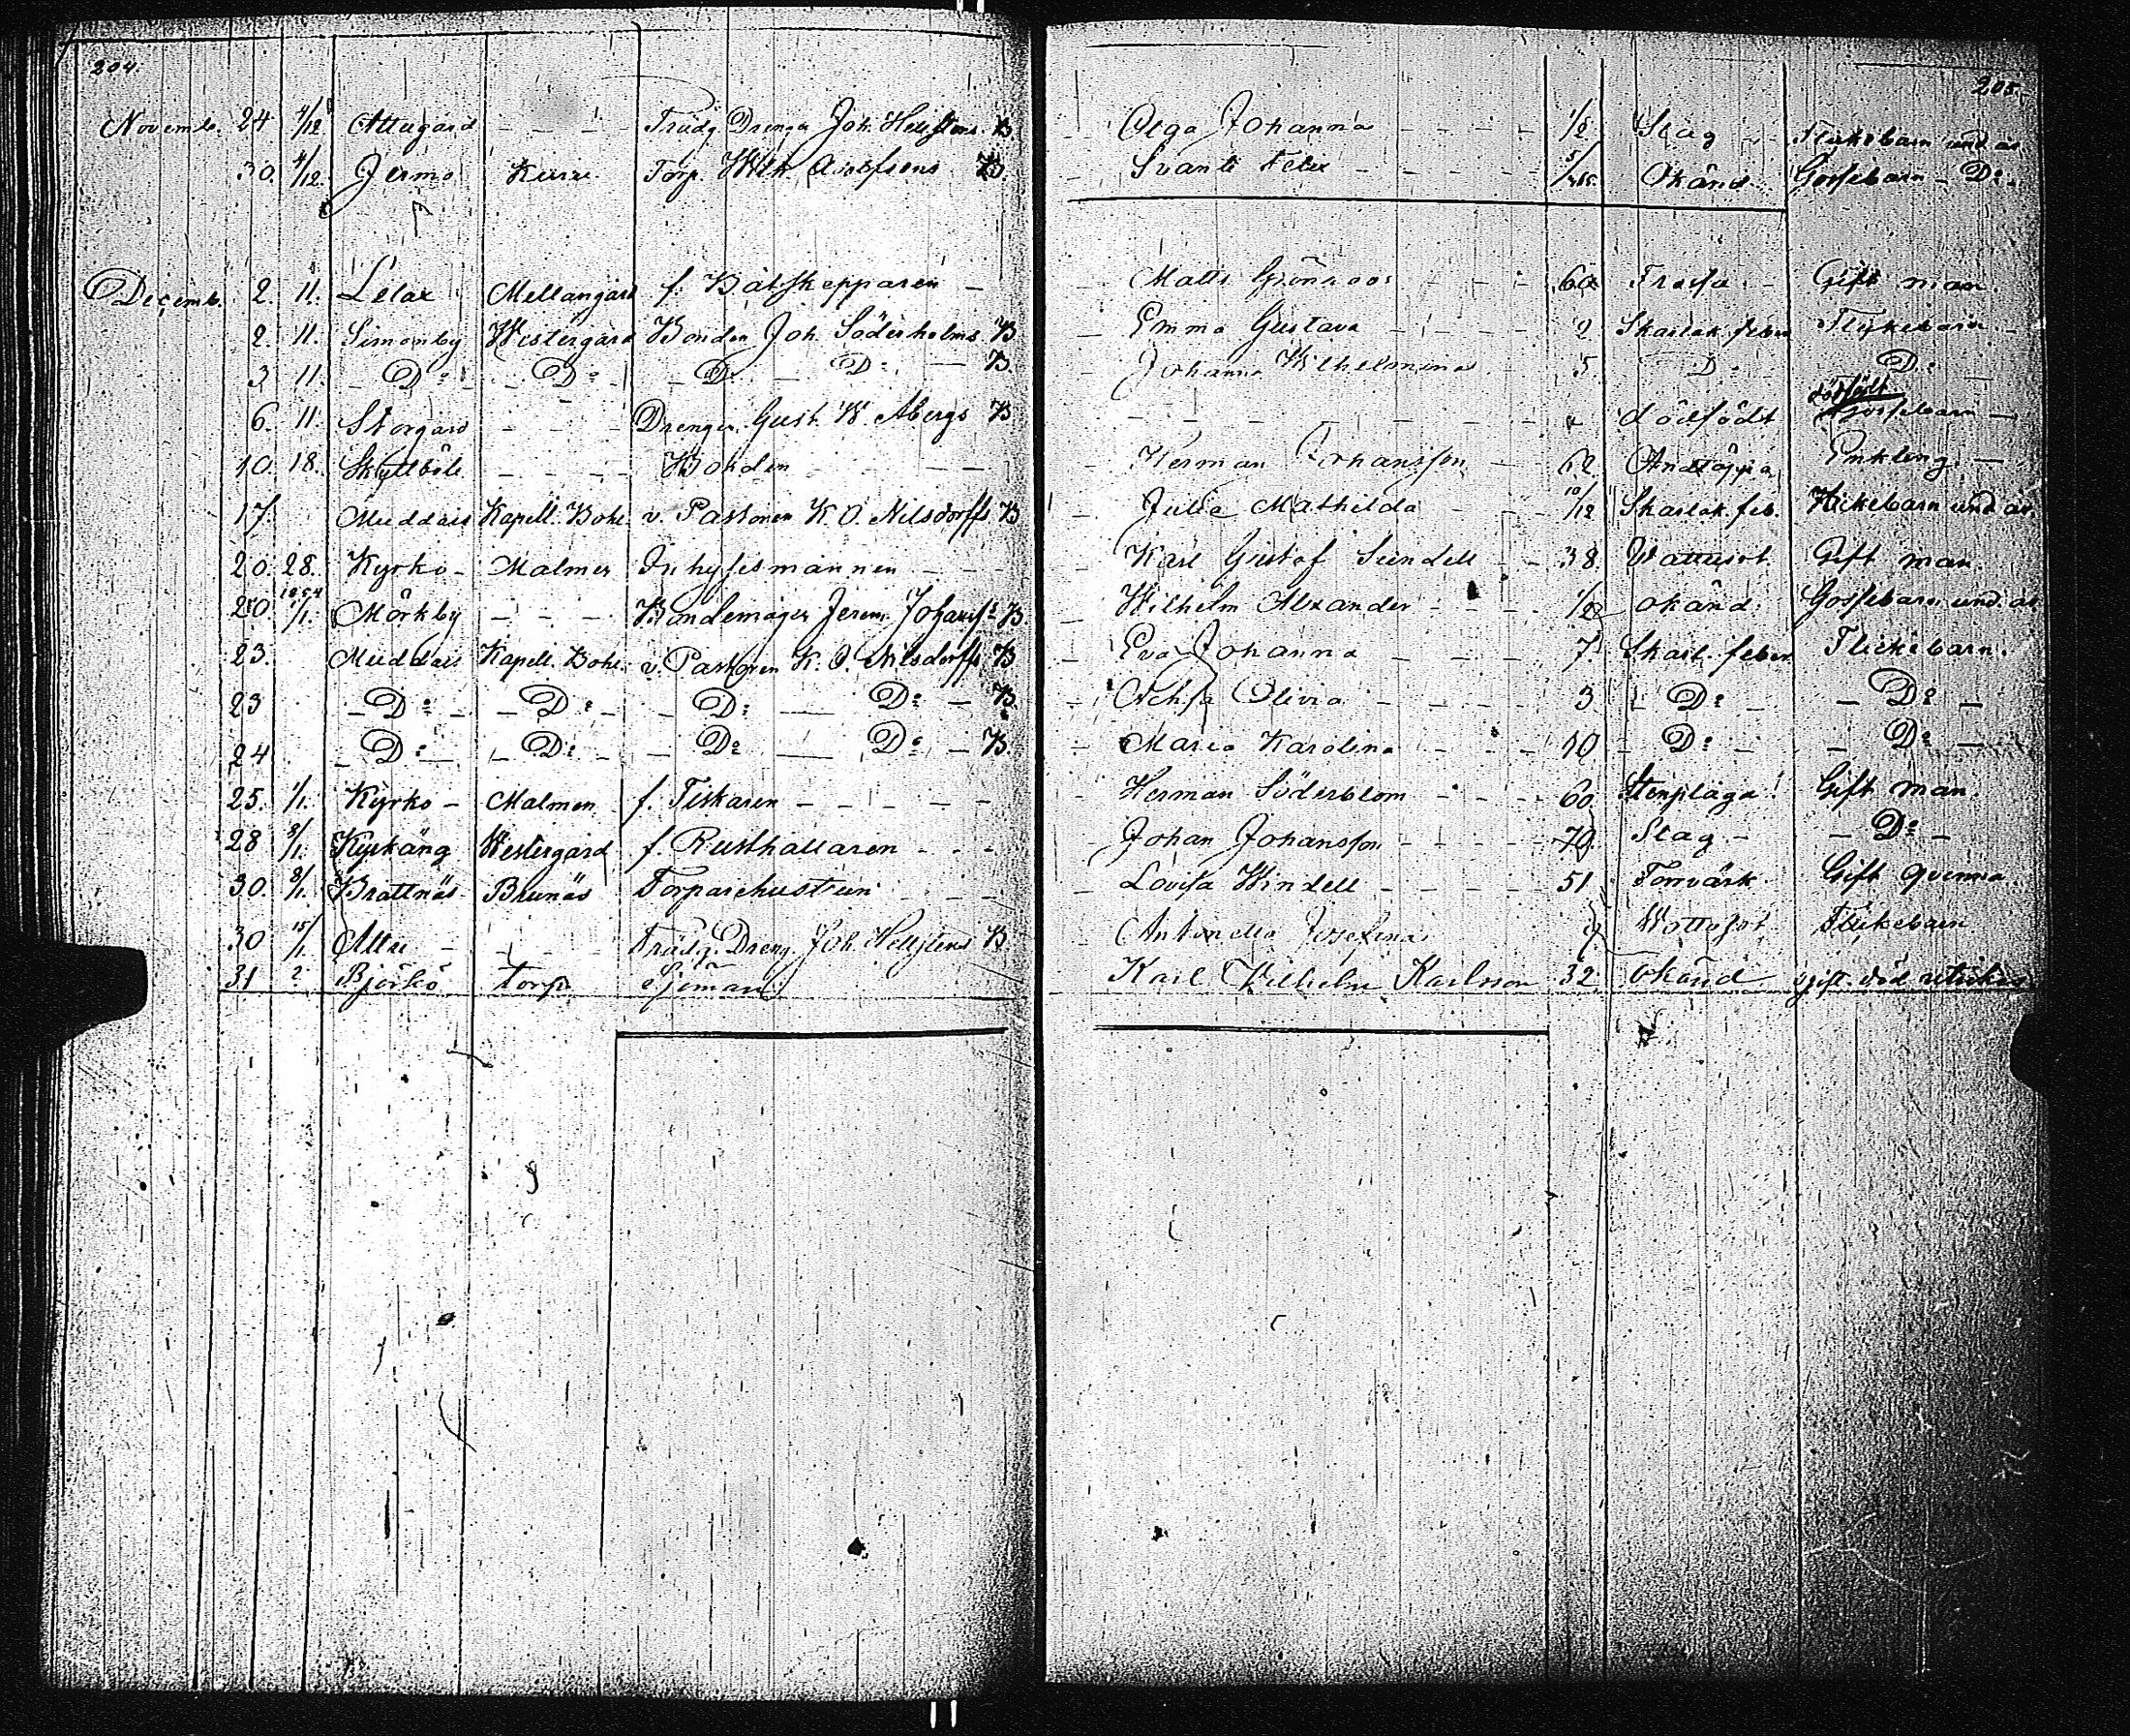 204.
205.
Novemb. 24 4/12 Attugård - - - Trädg. Drengen Joh. Hellstens B. Olga Johanna - - - - 1/2 Slag - Flickebarn und. år
30. 4/12. Jermo Kurre Torp. Wilh. Adolfsons B. Svante Felix - - - - Okänd Gossebarn - D:o
Decemb. 2. 11. Lelax Mellangård f. Båtskepparen - Matts Grönroos - - - 60 Frossa - Gift man.
2. 11. Simonby Westergård Bonden Joh. Söderholms B Emma Gustava - - - 2 Skarlak. feber Flickebarn -
3 11. - D:o - - D:o - - D:o - D:o - B. Johanna Wilhelmina - 5. D:o - D:o -
6. 11. Storgård - - - Drengen Gust. W. Åbergs B - - - - dödfödt dödfödt Gossebarn -
10. 18. Skyttböle - - - Bonden - - - Herman Johansson - 62 Andtäppa Enkling. -
17. Muddais Kapell. Bohl. v. Pastoren K. O. Nilsdorffs B Julia Mathilda - - - 10/12 Skarlak. feb. Flickebarn und. år.
20. 28. Kyrko- Malmen Inhysesmannen - - - Karl Gustaf Sundell - - 38. Wattusot Gift man.
20. 1/1. Mörkby - - - Bondemågen Jerem. Johanss:s B Wilhelm Alexander - - - okänd. Gossebarn und. år
23. Muddais Kapell. Bohl. v. Pastoren K. O. Nilsdorffs B Eva Johanna - - - 7. Skarl. feber Flickebarn.
23 - D:o - - D:o - - D:o - D:o - B. Olivia - - - 3 - D:o - - D:o -
24 - D:o - - D:o - - D:o - D:o - B Maria Karolina - - - 10 - D:o - - D:o -
25. 1/1. Kyrko - Malmen f. Fiskaren - - - - Herman Söderblom - - - 60. Stenplåga! Gift man.
28 8/1. Kyrkäng Westergård f. Rusthållaren - - - Johan Johansson - - - - 70. Slag - - D:o -
30. 8/1. Brattnäs Brunäs Torparehustrun - - - Lovisa Windell - - - - 51 Torrvärk Gift qvinna.
30 15/1. Attu - - - Trädg. Dreng. Joh. Hellstens B Josefina Wattusot Flickebarn
31 ? Björkö torp. Sjöman. Karl Wilhelm Karlsson 32. Okänd ogift. död utrikes